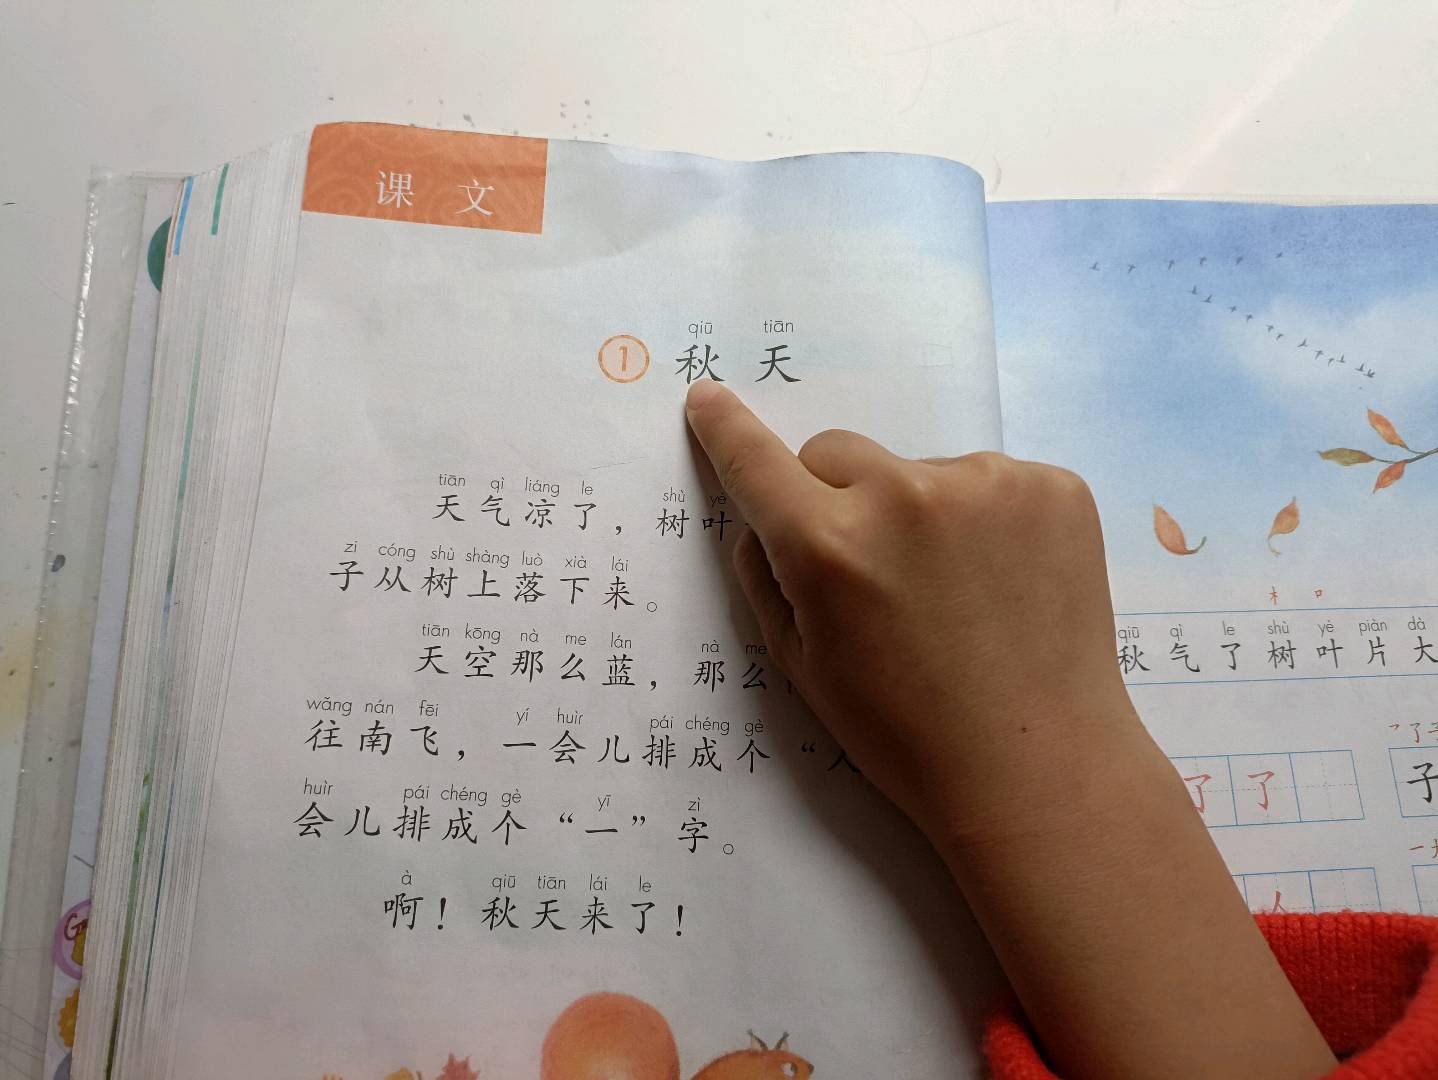 课 文
qiū tiān
1 秋 天
tiān qì liáng le shù yè
天 气 凉 了 ， 树 叶
zi cóng shù shàng luò xià lái
子 从 树 上 落 下 来 。
tiān kōng nà me lán nà me
天 空 那 么 蓝 ， 那 么
wǎng nán fēi yí huìr pái chéng gè
往 南 飞 ， 一 会 儿 排 成 个 “ 人
huìr pái chéng gè yī zì
会 儿 排 成 个 “ 一 ” 字 。
à qiū tiān lái le
啊 ！ 秋 天 来 了 ！
qiū qì le shù yè piàn dà
秋 气 了 树 叶 片 大
了 了
子
人